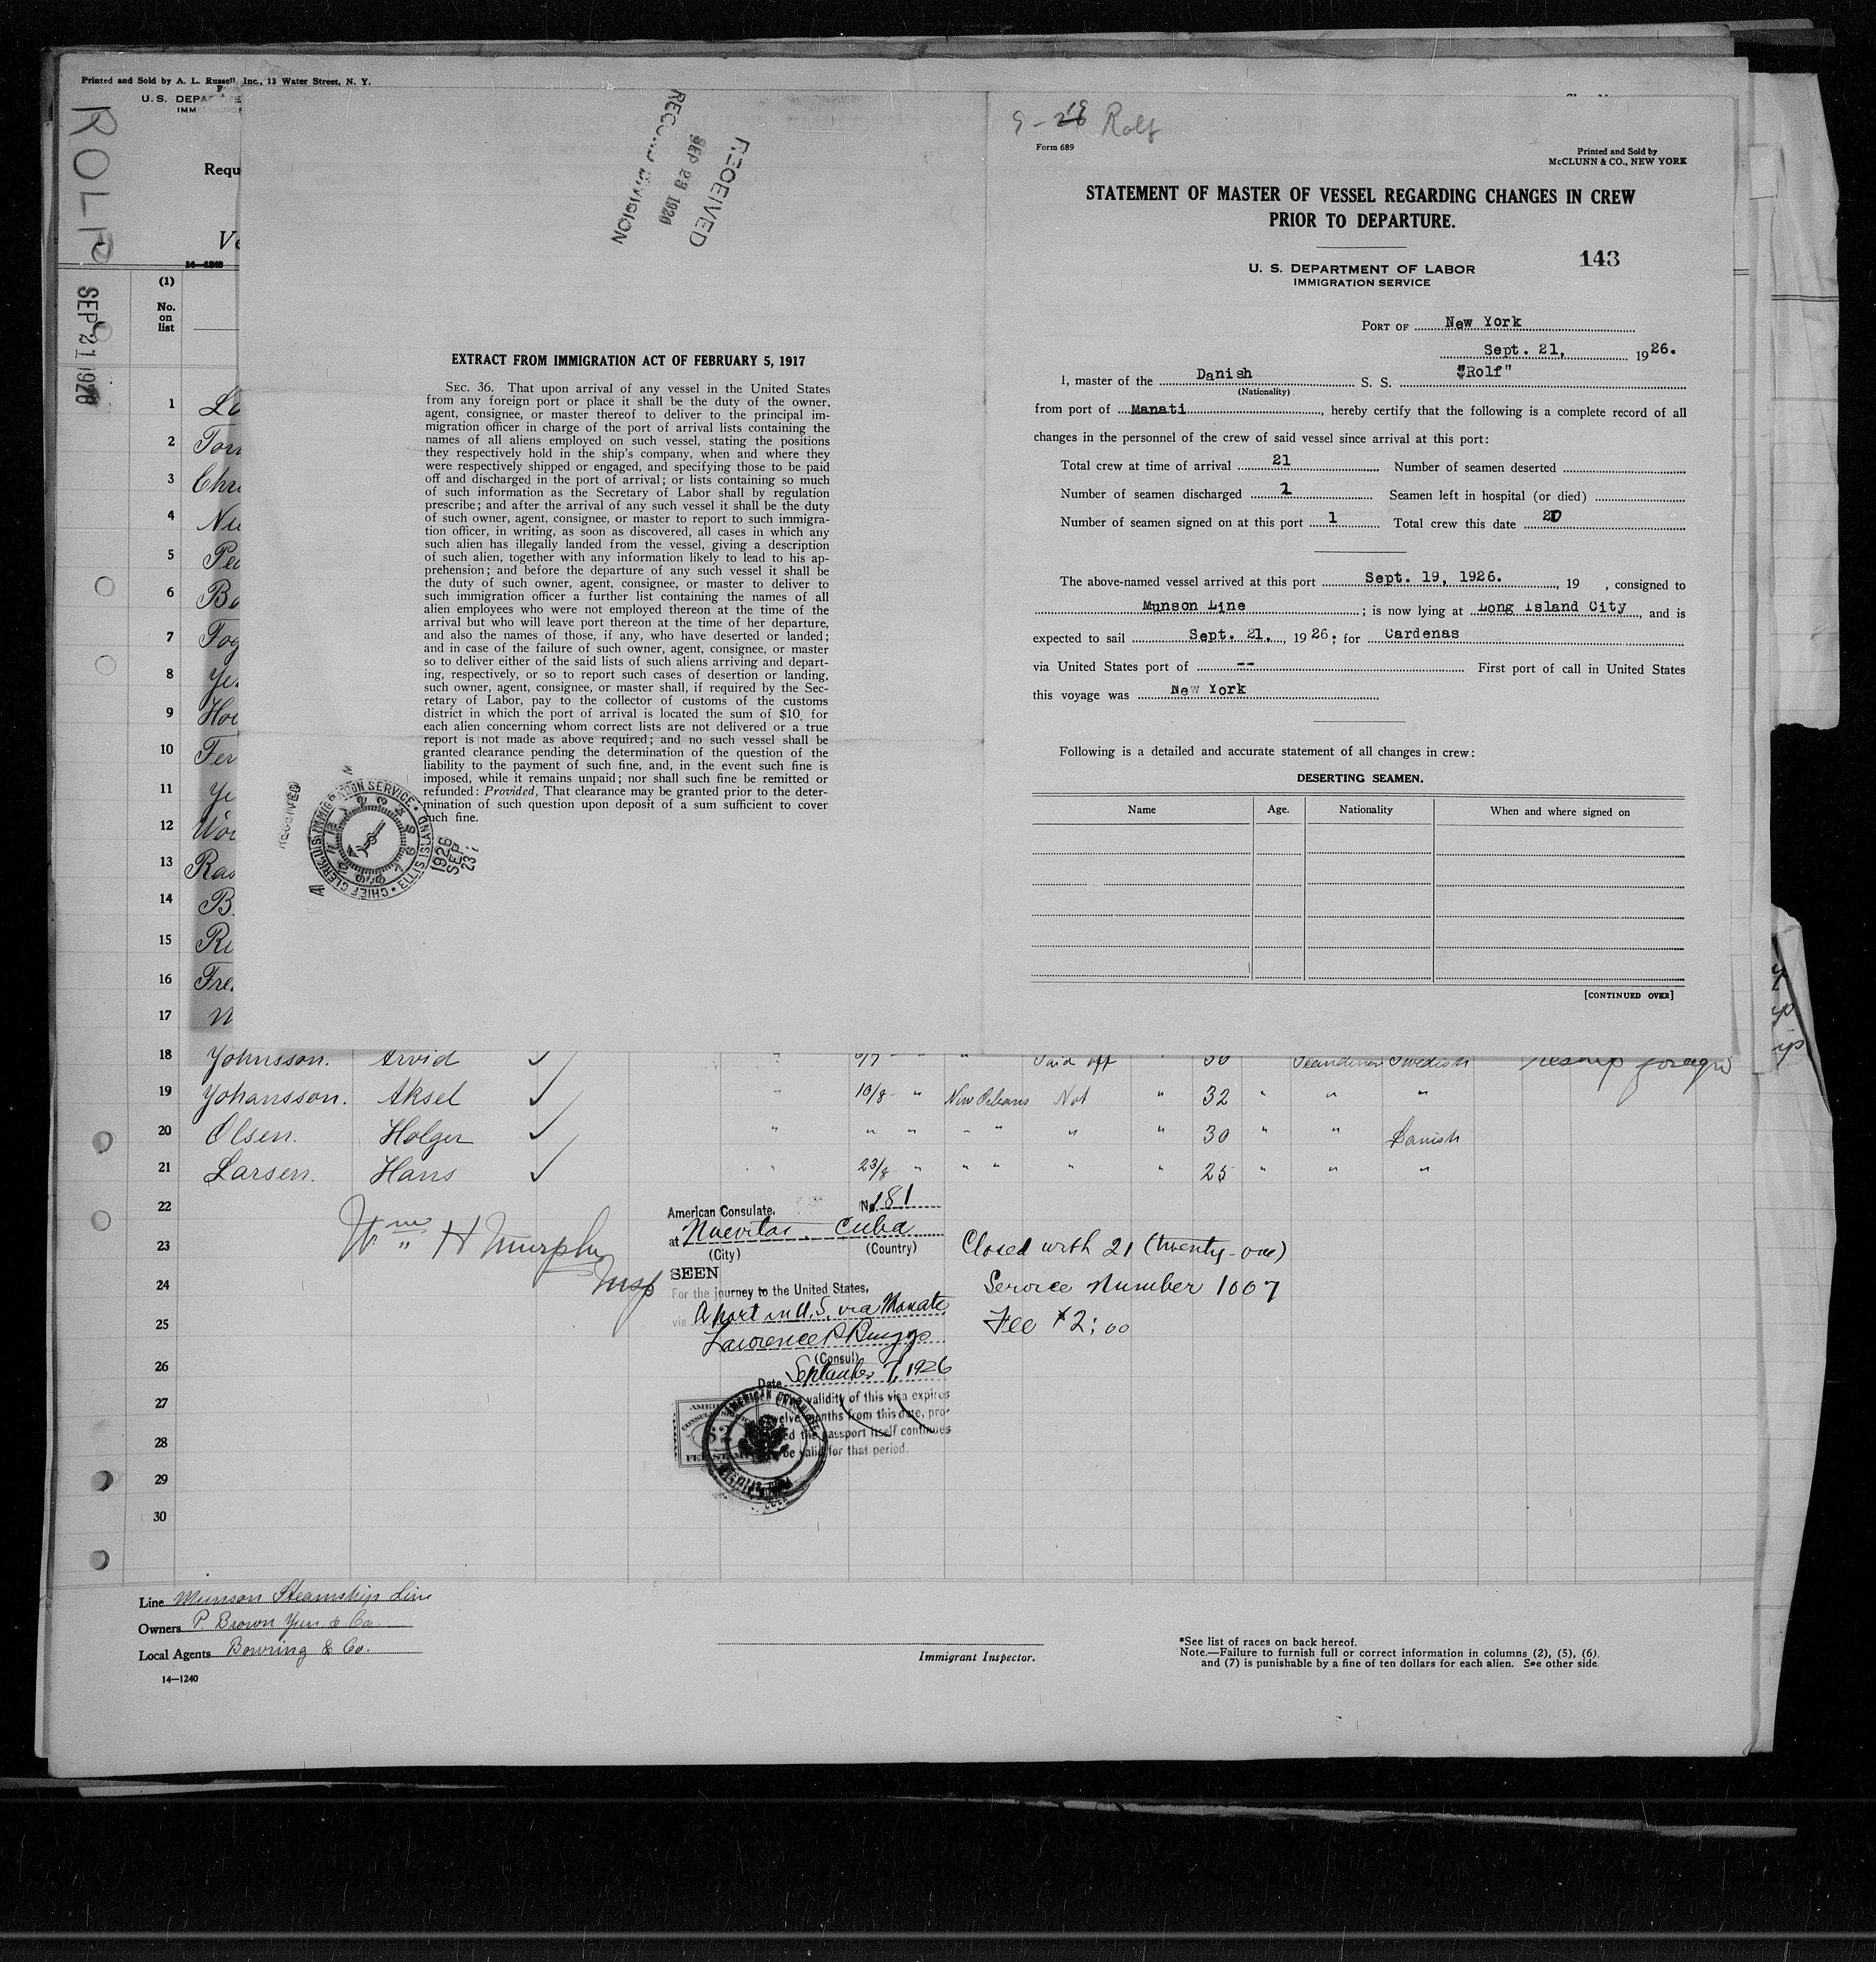 Printed and Sold by A. L. Russell, Inc., 13 Water Street, N. Y.
U. S. DEPA
IMM
ROLF
SEP 21 1926
Requ
Ve
14—1240
(1)
No.
on
list
1 La
2 Tor
3 Chri
4 Nu
5 Ped
6 Bo
7 Tog
8 Ye
9 Hou
10 Fer
11 Ye
12 Wo
13 Ras
14 B
15 Ri
16 Fre
17
RECEIVED
SEP 29 1926
RECORD DIVISION
EXTRACT FROM IMMIGRATION ACT OF FEBRUARY 5, 1917
SEC. 36. That upon arrival of any vessel in the United States
from any foreign port or place it shall be the duty of the owner,
agent, consignee, or master thereof to deliver to the principal im-
migration officer in charge of the port of arrival lists containing the
names of all aliens employed on such vessel, stating the positions
they respectively hold in the ship's company, when and where they
were respectively shipped or engaged, and specifying those to be paid
off and discharged in the port of arrival; or lists containing so much
of such information as the Secretary of Labor shall by regulation
prescribe; and after the arrival of any such vessel it shall be the duty
of such owner, agent, consignee, or master to report to such immigra-
tion officer, in writing, as soon as discovered, all cases in which any
such alien has illegally landed from the vessel, giving a description
of such alien, together with any information likely to lead to his ap-
prehension; and before the departure of any such vessel it shall be
the duty of such owner, agent, consignee, or master to deliver to
such immigration officer a further list containing the names of all
alien employees who were not employed thereon at the time of the
arrival but who will leave port thereon at the time of her departure,
and also the names of those, if any, who have deserted or landed;
and in case of the failure of such owner, agent, consignee, or master
so to deliver either of the said lists of such aliens arriving and depart-
ing, respectively, or so to report such cases of desertion or landing,
such owner, agent, consignee, or master shall, if required by the Sec-
retary of Labor, pay to the collector of customs of the customs
district in which the port of arrival is located the sum of $10 for
each alien concerning whom correct lists are not delivered or a true
report is not made as above required; and no such vessel shall be
granted clearance pending the determination of the question of the
liability to the payment of such fine, and, in the event such fine is
imposed, while it remains unpaid; nor shall such fine be remitted or
refunded: Provided, That clearance may be granted prior to the deter-
mination of such question upon deposit of a sum sufficient to cover
such fine.
RECEIVED
U.S. IMMIGRATION SERVICE • ELLIS ISLAND • CHIEF CLERK
1926
SEP
23
9-19 Rolf
Form 689
Printed and Sold by
McCLUNN & CO., NEW YORK
STATEMENT OF MASTER OF VESSEL REGARDING CHANGES IN CREW
PRIOR TO DEPARTURE.
143
U. S. DEPARTMENT OF LABOR
IMMIGRATION SERVICE
PORT OF New York
Sept. 21, 1926.
I, master of the Danish S. S. "Rolf"
(Nationality)
from port of Manati, hereby certify that the following is a complete record of all
changes in the personnel of the crew of said vessel since arrival at this port:
Total crew at time of arrival 21 Number of seamen deserted
Number of seamen discharged 1 Seamen left in hospital (or died)
Number of seamen signed on at this port 1 Total crew this date
The above-named vessel arrived at this port Sept. 19, 1926. , 19 , consigned to
Munson Line ; is now lying at Long Island City, and is
expected to sail Sept. 21, 1926; for Cardenas
via United States port of -- First port of call in United States
this voyage was New York
Following is a detailed and accurate statement of all changes in crew:
DESERTING SEAMEN.
Name Age. Nationality When and where signed on
[CONTINUED OVER]
18 Yohnsson. Arvid ✓ " 6/7 - " " Paid off " 30 Scandinav Swedish reship foreign
19 Yohansson. Aksel ✓ " 10/8 - " New Orleans Not " 32 " " "
20 Olsen. Holger ✓ " " " " " " " 30 " " Danish
21 Larsen. Hans ✓ " 23/8 " " " " " 25 " " "
22
23
24
25
26
27
28
29
30
Wm H Murphy
Insp
American Consulate, No. 181
at Nuevitas, Cuba
(City) (Country)
SEEN
For the journey to the United States,
via A port in U.S. via Manati
Lawrence P. Briggs
(Consul)
Date September 7, 1926
validity of this visa expires
twelve months from this date, pro-
ed the passport itself continues
be valid for that period.
AMERICAN CONSULATE
Closed with 21 (twenty-one)
Service Number 1007
Fee $2:00
Line Munson Steamship Line
Owners P. Brown Yun. & Co.
Local Agents Bowring & Co.
14—1240
Immigrant Inspector.
*See list of races on back hereof.
Note.—Failure to furnish full or correct information in columns (2), (5), (6),
and (7) is punishable by a fine of ten dollars for each alien. See other side.